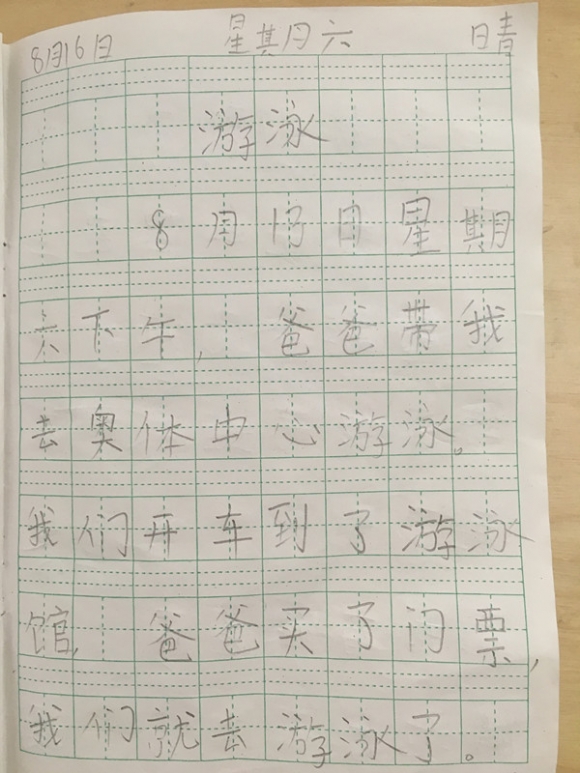 8月16日 星期六 晴
游泳
8月13日星期
六下午，爸爸带我
去奥体中心游泳。
我们开车到了游泳
馆，爸爸买了门票，
我们就去游泳了。